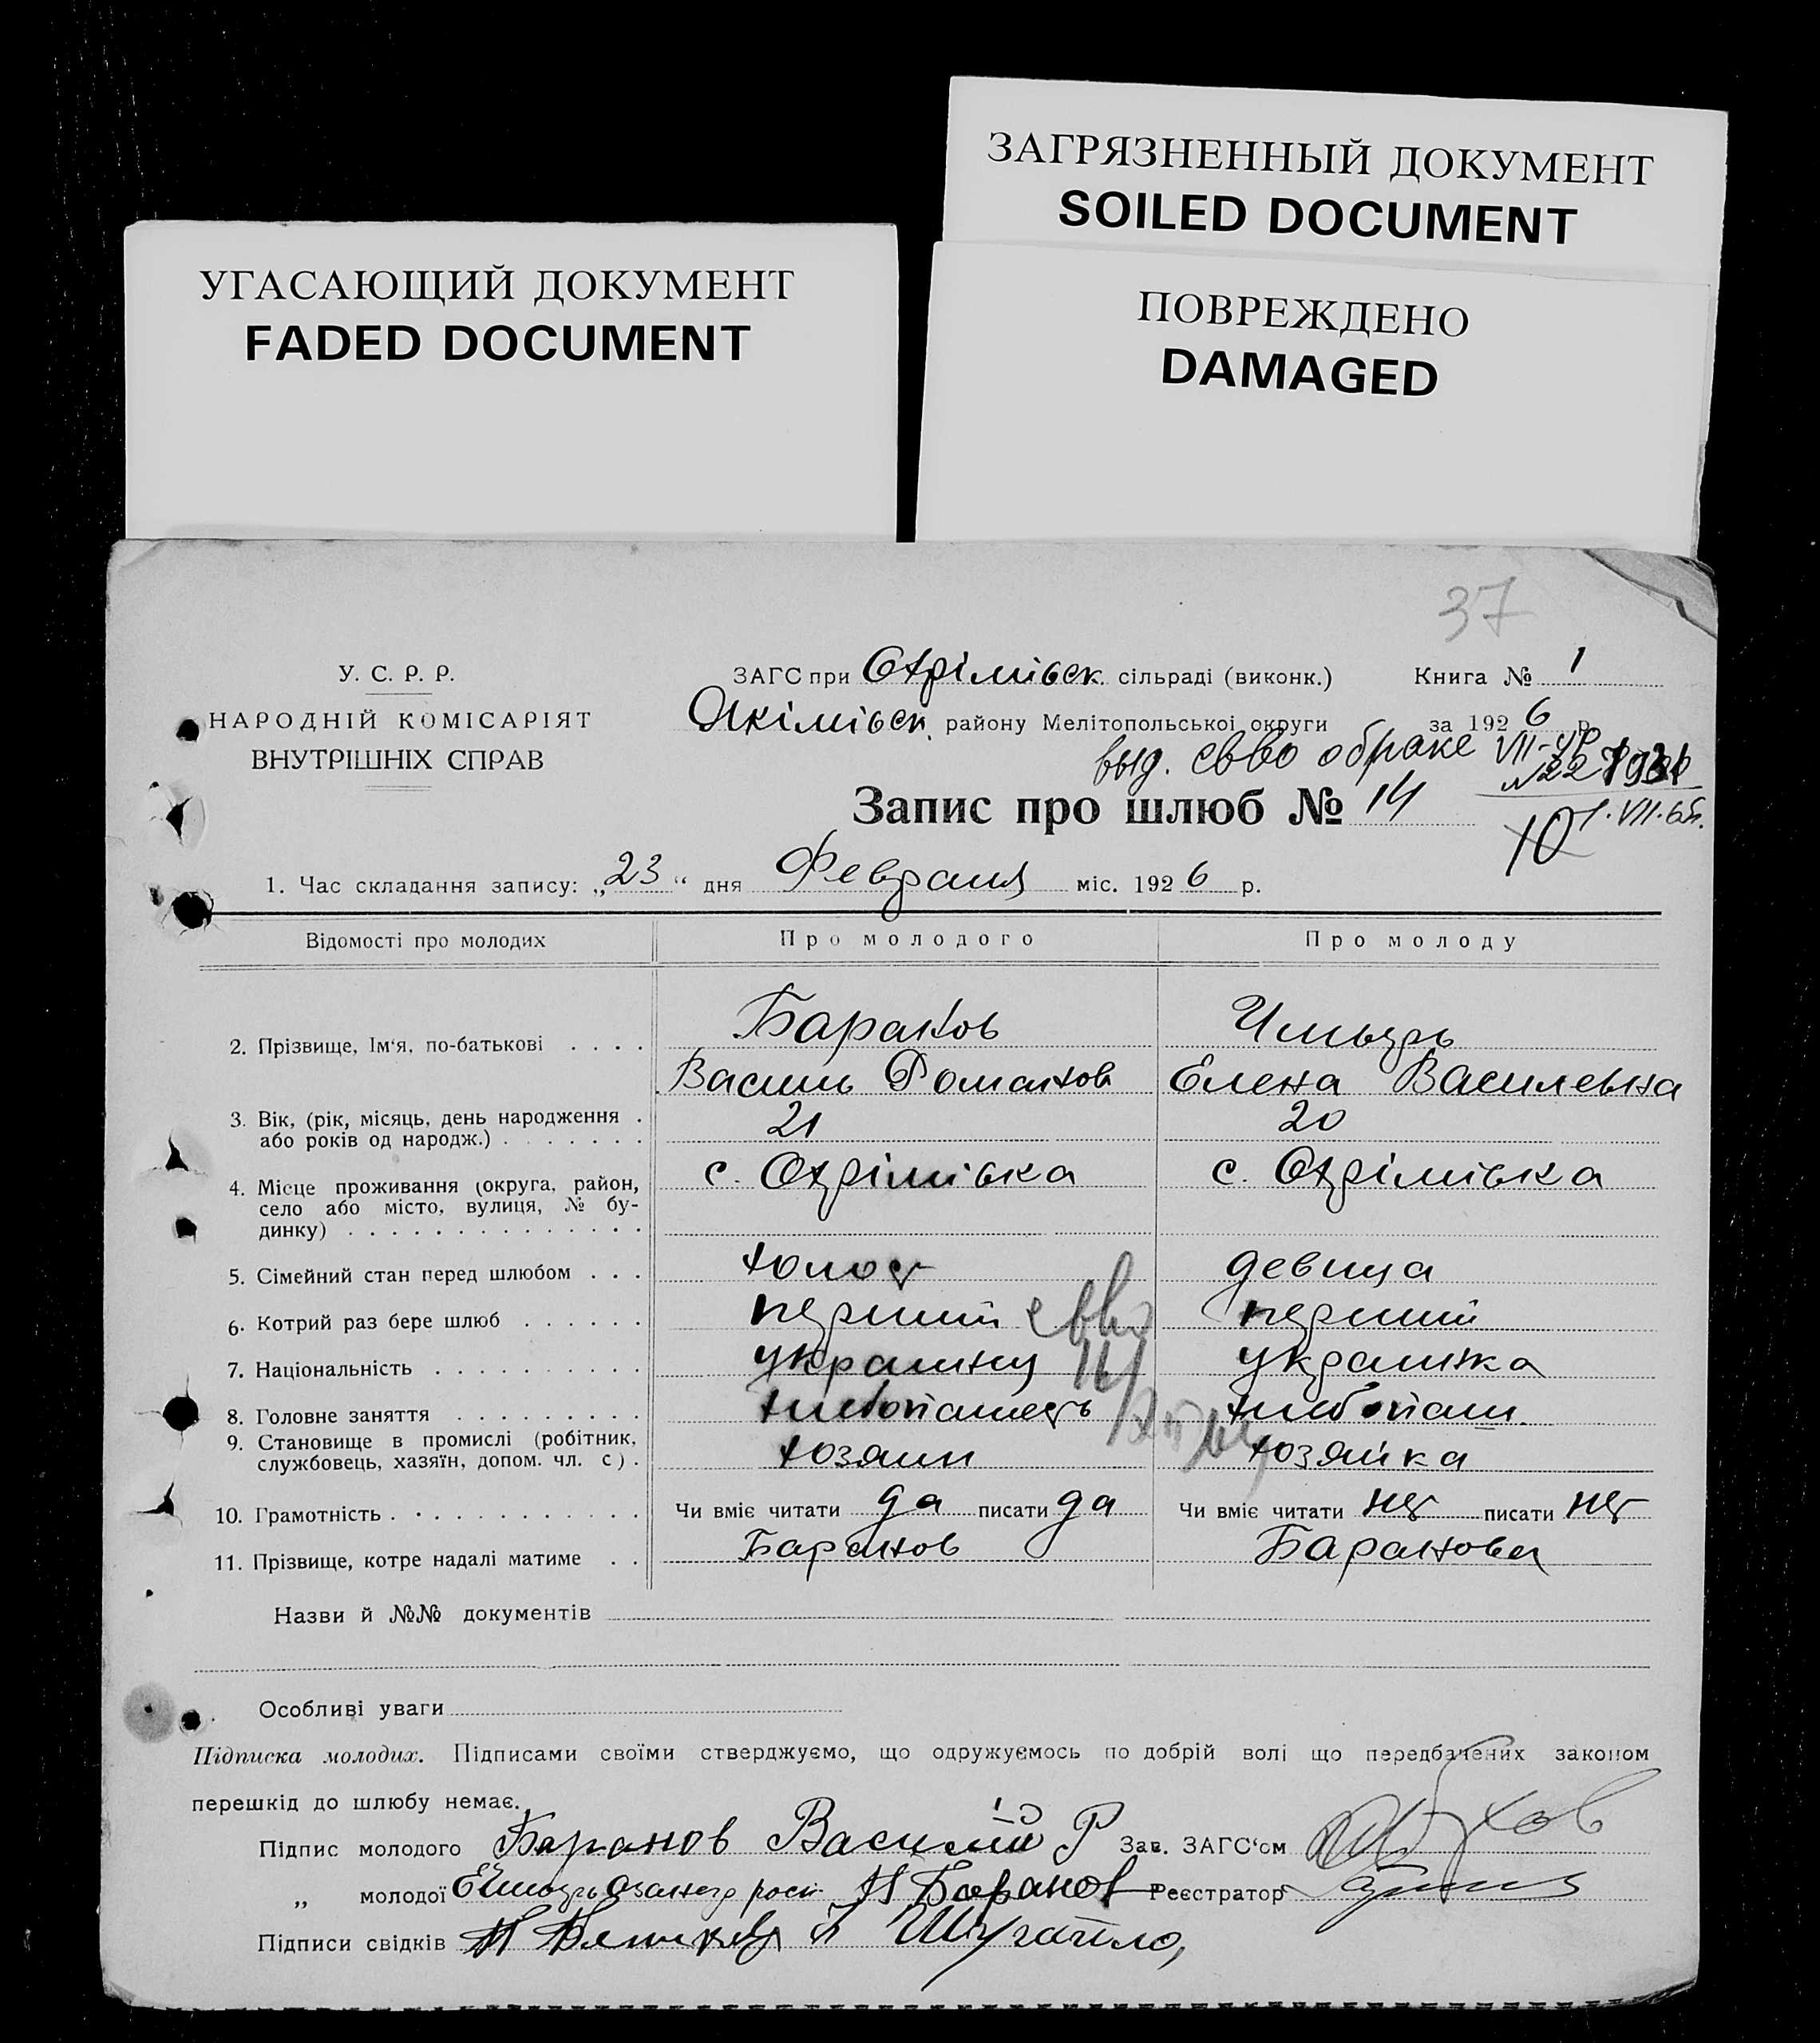 ЗАГРЯЗНЕННЫЙ ДОКУМЕНТ
SOILED DOCUMENT
УГАСАЮЩИЙ ДОКУМЕНТ
FADED DOCUMENT
ПОВРЕЖДЕНО
DAMAGED
37
У. С. Р. Р.
НАРОДНІЙ КОМІСАРІЯТ
ВНУТРІШНІХ СПРАВ
ЗАГС при Охрімівск. сільраді (виконк.) Книга № 1
Якімівск. району Мелітопольської округи за 1926 р.
выд. св-во о браке VII-УР
№22
Запис про шлюб № 14
1. Час складання запису: „23“ дня Февраля міс. 1926 р.
Відомості про молодих Про молодого Про молоду
2. Прізвище, Ім'я, по-батькові . . . . Баранов
Василь Романов Елена Василевна
3. Вік, (рік, місяць, день народження . 21 20
або років од народж.) . . . . . . .
4. Місце проживання (округа, район, с. Охрімівка с. Охрімівка
село або місто, вулиця, № бу-
динку) . . . . . . . . . . . . . .
5. Сімейний стан перед шлюбом . . . холост девица
6. Котрий раз бере шлюб . . . . . . перший перший
7. Національність . . . . . . . . . . українец українка
8. Головне заняття . . . . . . . . . хлібопашець хлібопаш.
9. Становище в промислі (робітник, хозяин хозяйка
службовець, хазяїн, допом. чл. с) .
10. Грамотність . . . . . . . . . . . . Чи вміє читати да писати да Чи вміє читати нет писати нет
11. Прізвище, котре надалі матиме . . Баранов Баранова
Назви й №№ документів
Особливі уваги
Підписка молодих. Підписами своїми стверджуємо, що одружуємось по добрій волі що передбачених законом
перешкід до шлюбу немає.
Підпис молодого Баранов Василий Р Зав. ЗАГС'ом
„ молодої Баранов Реєстратор
Підписи свідків